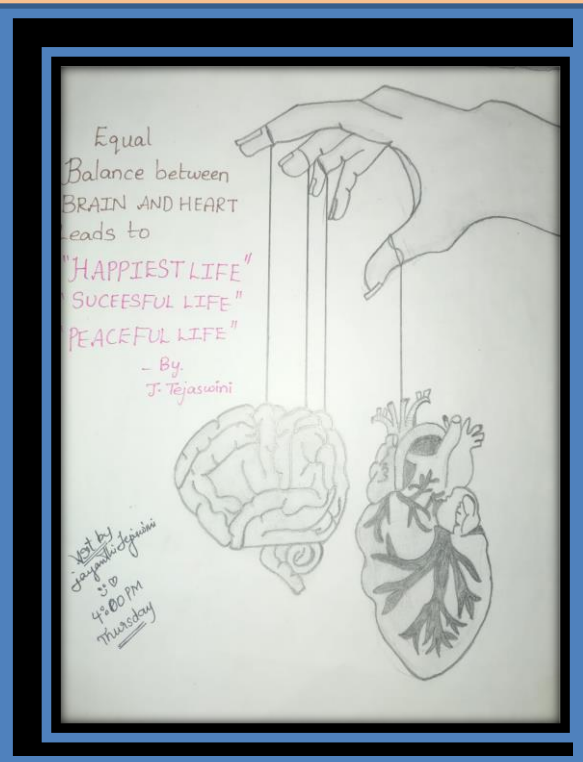 Equal
Balance between
BRAIN AND HEART
Leads to
"HAPPIEST LIFE"
"SUCEESFUL LIFE"
"PEACEFUL LIFE"
- By.
J. Tejaswini
Art by
4:00 PM
Thursday